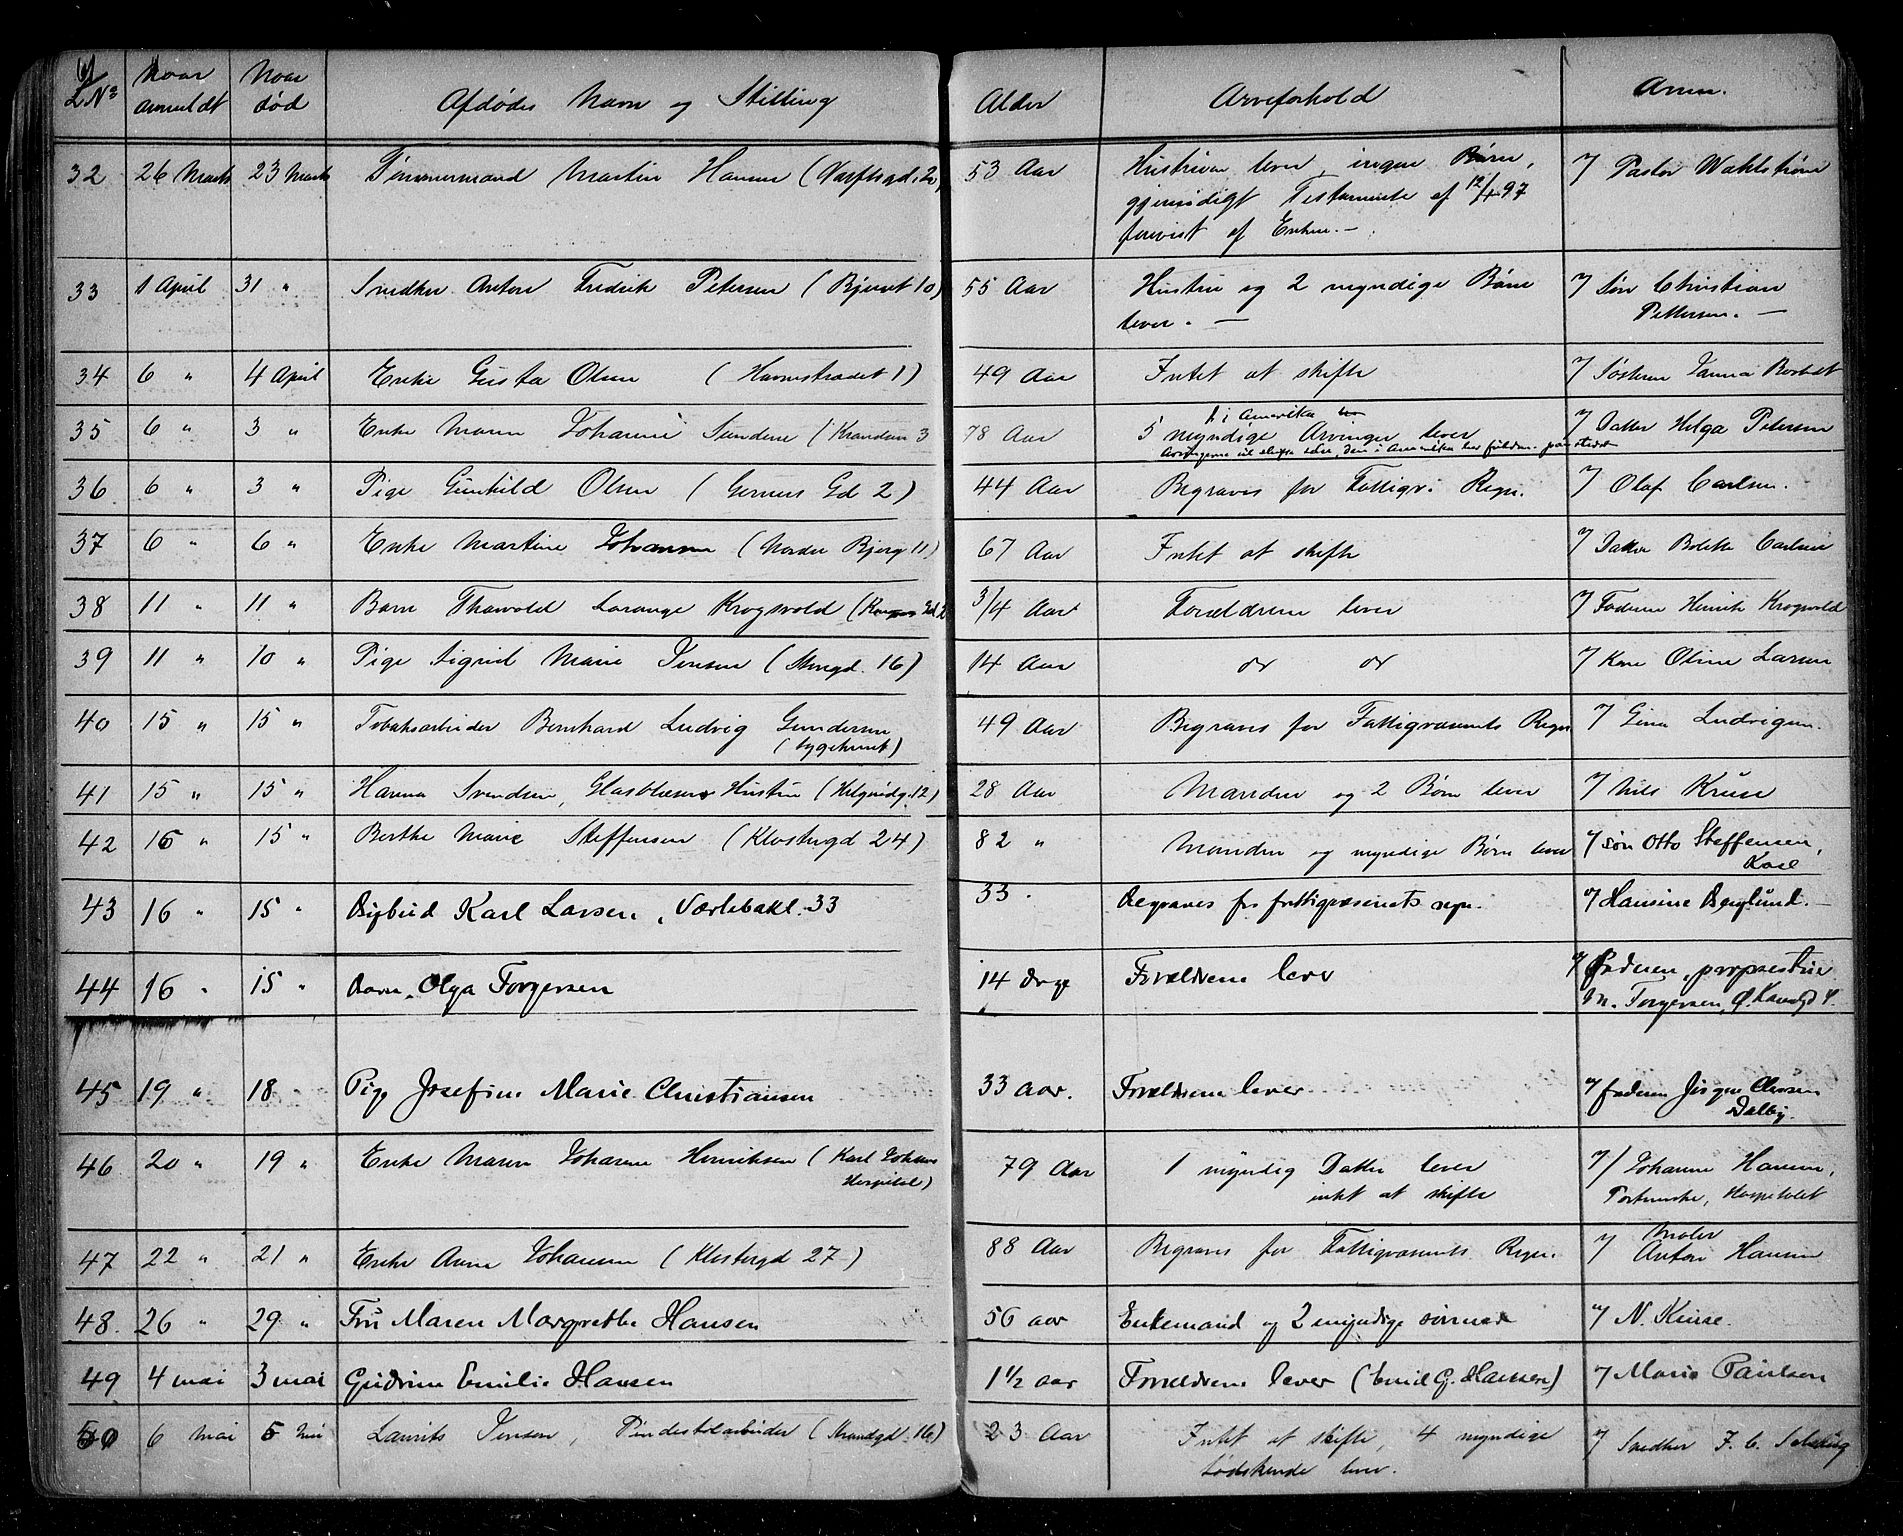 L No Naar anmeldt Naar død Afdødes Navn og Stilling Alder Arveforhold Anm.
32 26 Marts 23 Marts Tømmermand Martin Hansen (Værftsgd. 20) 53 Aar Hustruen lever, ingen Børn, % Pastor Wahlstrøm
gjensidigt Testamente af 12/4 97
forevist af Enken. —
33 1 April 31 " Snedker Anton Fredrik Petersen (Bjerget 10) 55 Aar Hustru og 2 myndige Børn % Søn Christian
lever. — Pettersen. —
34 6 " 4 April Enke Gusta Olsen (Havnestrædet 1) 49 Aar Intet at skifte % Søsteren Janna
1 i Amerika
35 6 " 3 " Enke Maren Johanne Sundene 78 Aar 5 myndige Arvinger lever % Datter Helga Petersen
Arvingerne vil skifte selv, den i Amerika
36 6 " 3 " Pige Gunhild Olsen (Gerners Gd 2) 44 Aar Begraves for Fattigv: Regn. % Olaf Carlsen.
37 6 " 6 " Enke Martine Johansen (Nordre Bjerg. 11) 67 Aar Intet at skifte % Datter Bolette Carlsen
38 11 " 11 " Barn Thorvold Lorange Krogsvold 3/4 Aar Forældrene lever % Faderen Henrik Krogsvold
39 11 " 10 " Pige Sigrid Marie Jensen (Storgd. 16) 14 Aar do do % Kone Oline Larsen
40 15 " 15 " Tobaksarbeider Bernhard Ludvig Gundersen 49 Aar Begraves for Fattigvæsenets Regn % Gina Ludvigsen.
(Sygehuset)
41 15 " 15 " Hanna Svendsen, Glasblæsers Hustru (Helgvidg. 12) 28 Aar Manden og 2 Børn lever % Nils Kruse
42 16 " 15 " Berthe Marie Steffensen (Klostergd 24) 82 " Manden og myndige Børn lever % søn Otto Steffensen,
43 16 " 15 " Bybud Karl Larsen, Værlebakk. 33 33 . Begraves for fattigvæsenets regn. % Hansine Berglund. —
44 16 " 15 " Barn, Olga Torgersen 14 Dage Forældrene lever % Faderen,
M. Torgersen,
45 19 " 18 " Pige Josefine Marie Christiansen 33 aar. Forældrene lever % faderen Jørgen
Dalby.
46 20 " 19 " Enke Maren Johanne Henriksen (Karl Johans 79 Aar 1 myndig Datter lever % Johanne Hansen,
Hospital) intet at skifte Hospitalet
47 22 " 21 " Enke Anne Johansen (Klostergd 27) 88 Aar Begraves for Fattigvæsenets Regn. % Maler
Anton Hansen
48. 26 " 29 " Fru Maren Margrethe Hansen 56 aar Enkemand og 2 myndige sønner % N. Kruse.
49 4 mai 3 mai Gudrun Emilie Hansen 1½ aar Forældrene lever (Emil G. Hansen) % Marie Paulsen
50 6 Mai 5 Mai Laurits Jensen, Pindestolarbeider (Strandgd. 16) 23 Aar Intet at skifte, 4 myndige % Snedker F. C.
Sødskende lever.